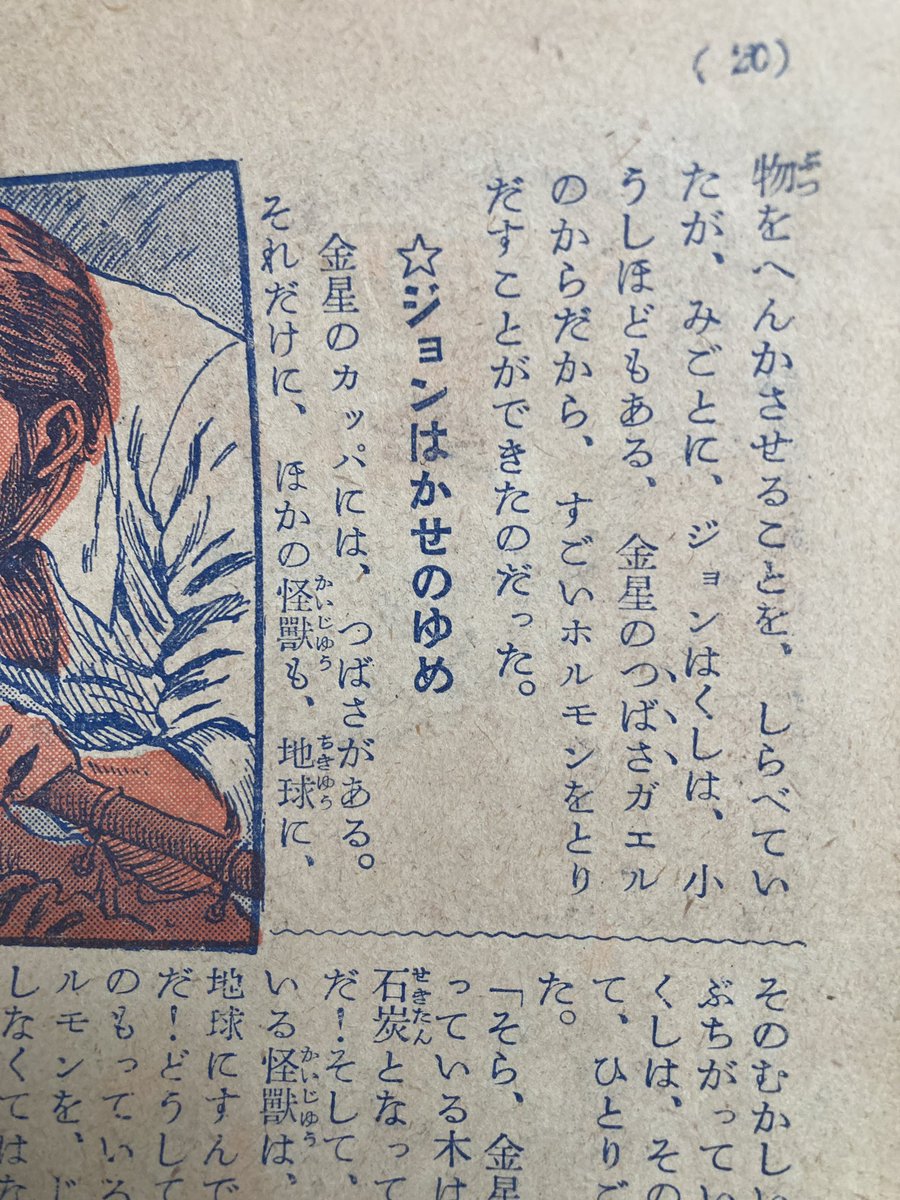 (20)
物をへんかさせることを、しらべてい
たが、みごとに、ジョンはくしは、小
うしほどもある、金星のつばさガエル
のからだから、すごいホルモンをとり
だすことができたのだった。
☆ジョンはかせのゆめ
金星のカッパには、つばさがある。
それだけに、ほかの怪獸も、地球に、
そのむかしい
ぶちがってい
くしは、その
て、ひとりご
た。
「そら、金星
っている木は
石炭となって
だ！そして、
いる怪獸は、
地球にすんで
だ！どうして
のもっている
ルモンを、じ
しなくてはな